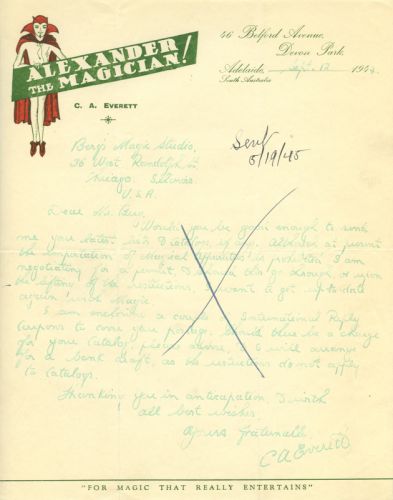 ALEXANDER
THE MAGICIAN!
C. A. EVERETT
46 Belford Avenue,
Devon Park.
Adelaide, Sept. 12 1944
South Australia
Berg's Magic Studio,
30 West Randolph St
Chicago. Illinois.
U.S.A.
Sent
5/19/45
Dear Mr. Berg,
Would you be good enough to send
me your latest list & catalog, if any. Although at present
the importation of Magical Apparatus is prohibited I am
negotiating for a permit, & should this go through, or upon
the lifting of the restrictions, I want to get up to date
again with Magic.
I am enclosing a couple of International Reply
Coupons to cover your postage. Should there be a charge
for your catalog, please advise, & I will arrange
for a bank draft, as the restrictions do not apply
to catalogs.
Thanking you in anticipation, & with
all best wishes,
Yours fraternally,
C A Everett
"FOR MAGIC THAT REALLY ENTERTAINS"